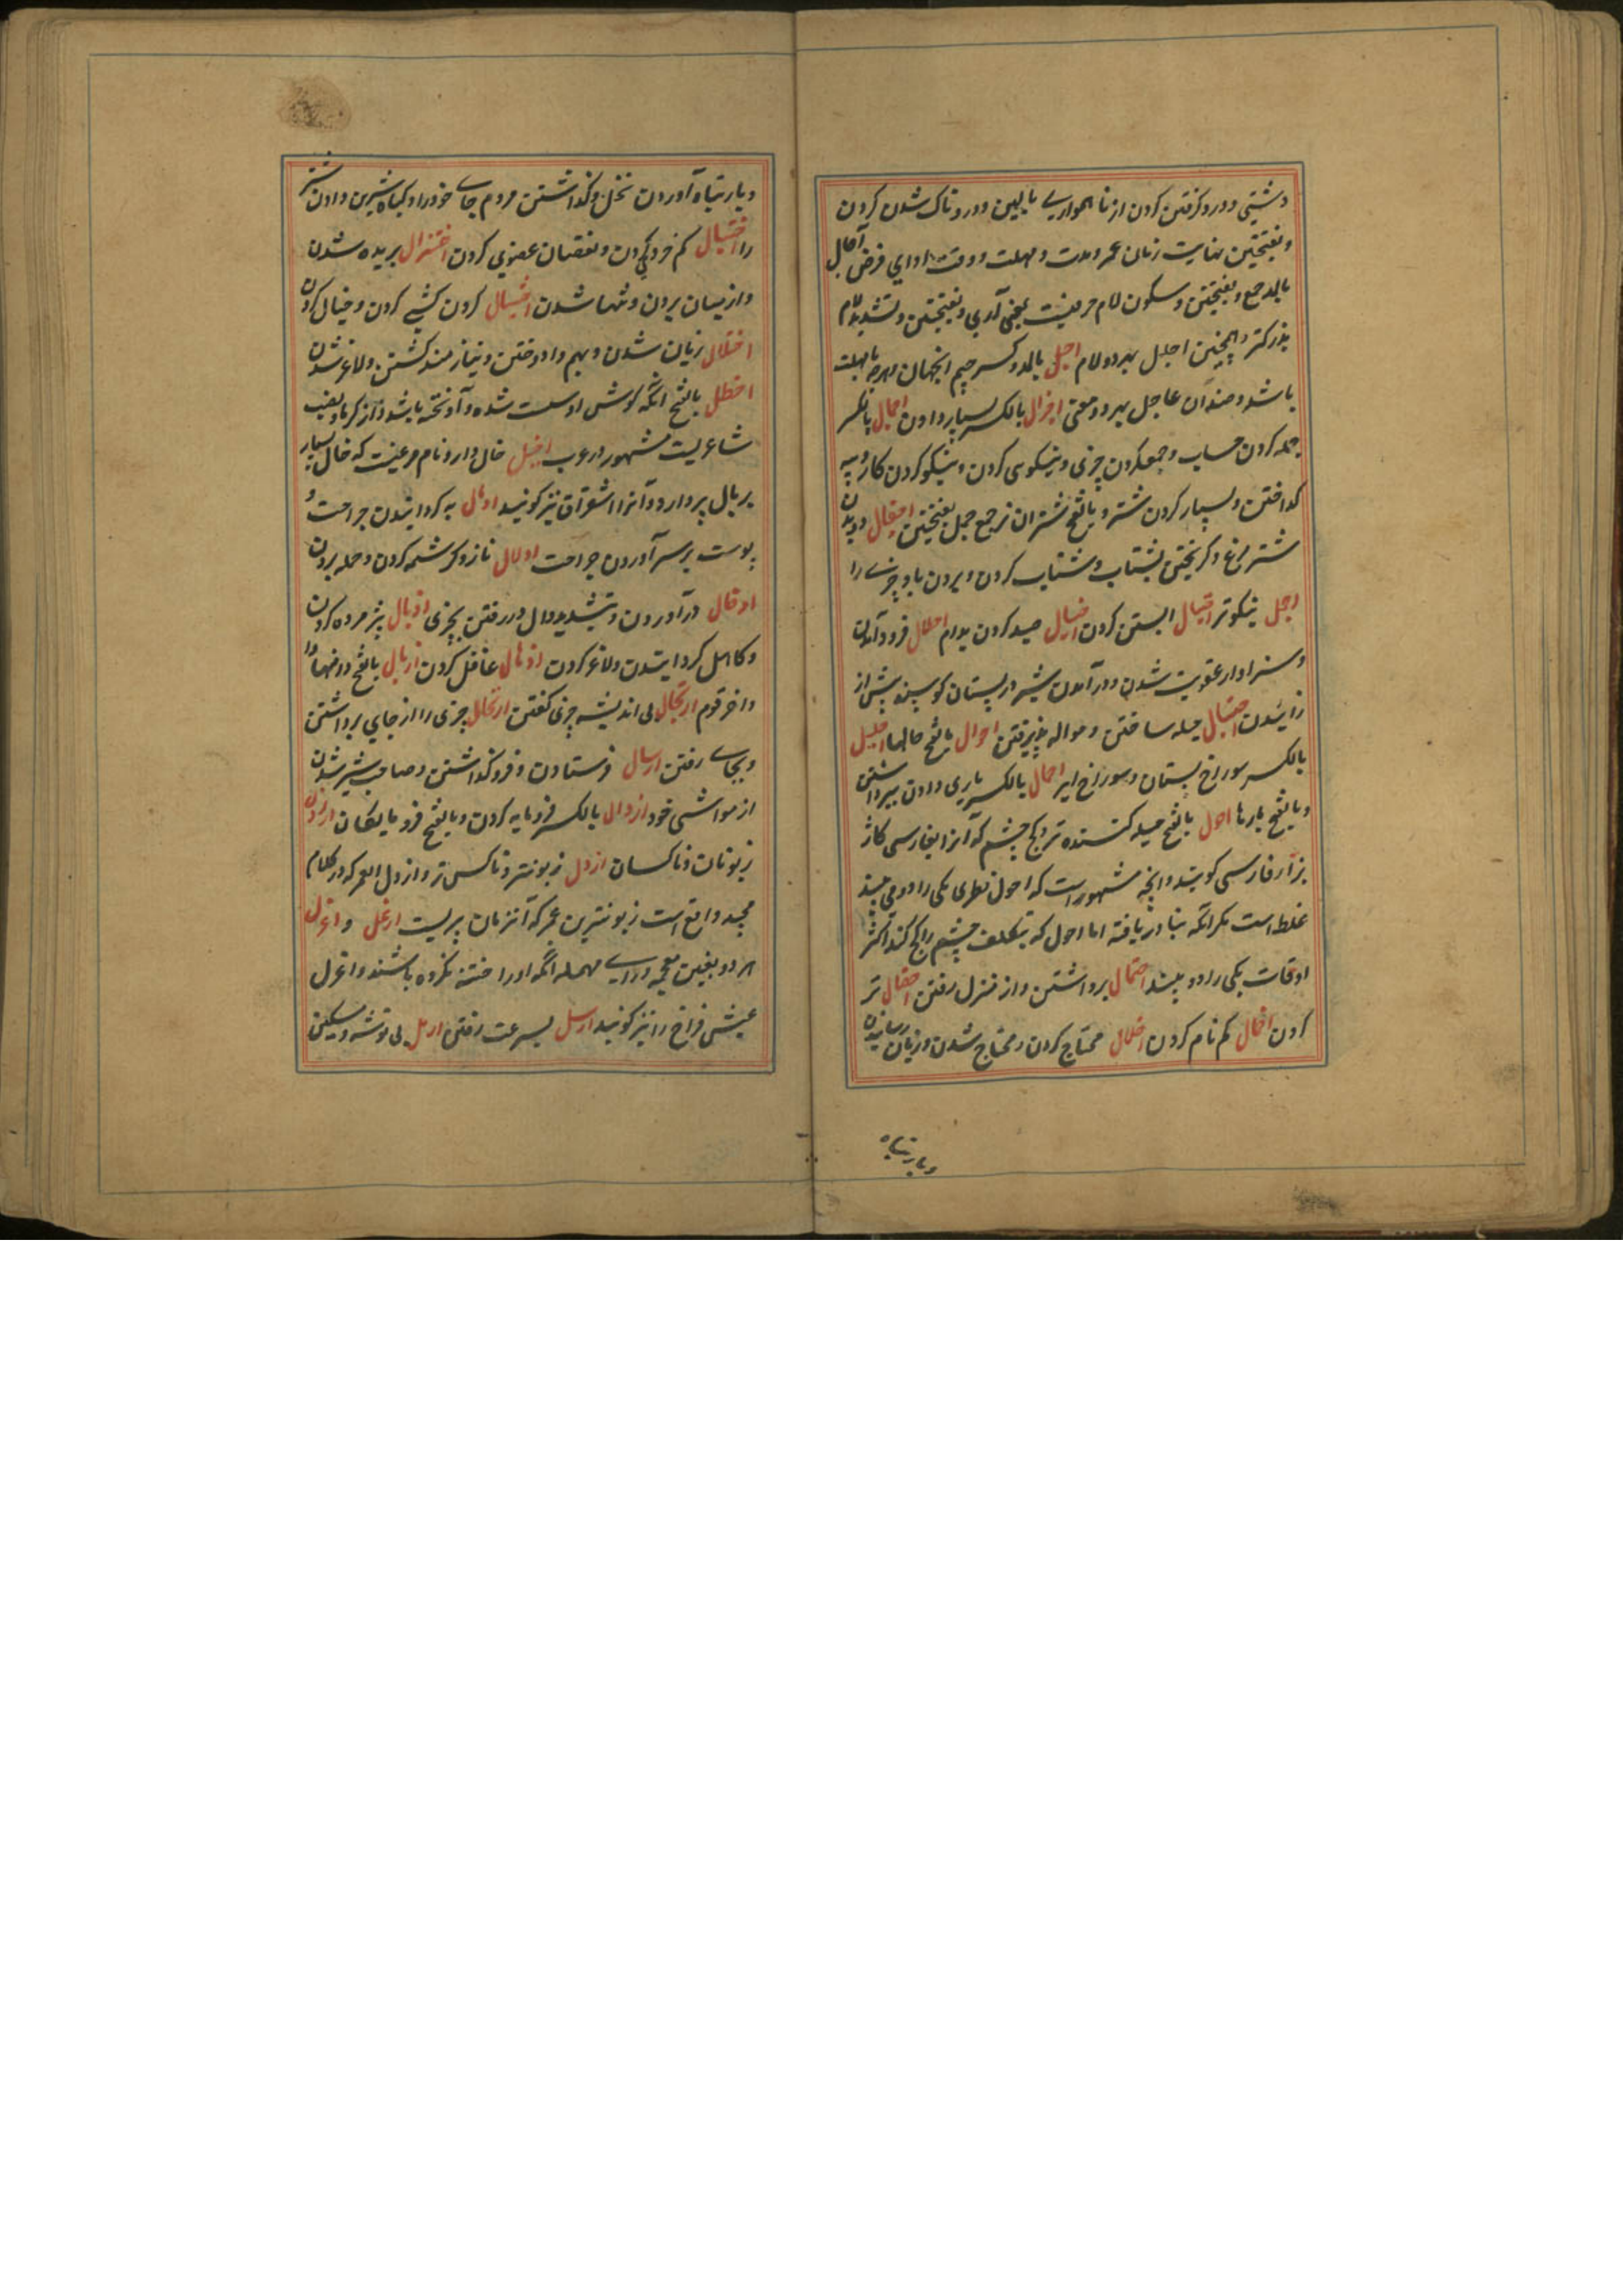 دشتی و درو گرفتن کردن از ناهمواری بالین و دردناک شدن کردن
و بفتحتین نهایت زمان عمر و مدت و مهلت و وقت ادای قرض آجال
بالمد جمع و بفتحتین و سکون لام حرفیست بمعنی آری و بفتحتین و تشدید لام
بزرکتر و همچنین اجلل بهر دو لام اجل بالمد و کسر جیم آنجهان و هرچه با مهلت
باشد و ضد آن عاجل بهر دو معنی اجزال بالکسر بسیار دادن اجمال بالکسر
جمله کردن حساب و جمع کردن چیزی و نیکوی کردن و نیکو کردن کار و پیه
کداختن و بسیار کردن شتر و بالفتح شتران نر جمع جمل بفتحتین اجفال دویدن
شتر مرغ و کریختن بشتاب و شتاب کردن و بردن باد چیزی را
اجمل نیکوتر احبال ابستن کردن احتبال صید کردن بدام احلال فرود آمدن
و سزاوار عقوبت شدن و در آمدن شیر در پستان کوسپند پیش از
زاییدن احتیال حیله ساختن و حواله پذیرفتن احوال بالفتح حالها احلیل
بالکسر سوراخ پستان و سوراخ ایر احمال بالکسر یاری دادن ببرداشتن
و بالفتح بارها احول بالفتح حیله کننده تر و کج چشم که آنرا بفارسی کاژ
بزاء فارسی کویند و آنچه مشهور است که احول یکی را دو می بیند
غلط است مکر آنکه بنادر یافته اما احول که بتکلف چشم را کج کند اکثر
اوقات یکی را دو بیند احتمال برداشتن و از منزل رفتن احفال تر
کردن اخمال کم نام کردن اخلال محتاج کردن و محتاج شدن و زیان رسانیدن
و بار تباه
و بار تباه آوردن نخل و گذاشتن مردم جای خود را و گیاه شیرین دادن شتر
را اختبال کم خرد کردن و نقصان عضوی کردن اختزال بریده شدن
و از میان بردن و تنها شدن اختیال کردن کشی کردن و خیال کردن
اختلال زیان شدن و بهم وادوختن و نیازمند کشتن و لاغر شدن
اخطل بالفتح آنکه کوش او سست شده و آویخته باشد و لقب
شاعریست مشهور در عرب اخیل خال دار و نام مرغیست که خال بسیار
بر بال پر دارد و آنرا شقراق نیز کویند ادمال به کردانیدن جراحت و
پوست بر سر آوردن جراحت ادلال ناز و کرشمه کردن و حمله بردن
ادخال در آوردن و بتشدید دال در رفتن بچیزی اذبال پژمرده کردن
و کاهل کردانیدن و لاغر کردن اذهال غافل کردن اذیال بالفتح دامنها
و آخر قوم ارتجال بی اندیشه چیزی گفتن ارتحال چیزی را از جای برداشتن
و بجای رفتن ارسال فرستادن و فرو گذاشتن و صاحب شیر شدن
از مواشی خود ارذال بالکسر فرومایه کردن و بالفتح فرومایکان ارذلان
زبونان و ناکسان ارذل زبونتر و ناکس تر و ارذل العمر که در کلام
مجید واقع است زبونترین عمر که آنزمان پیریست ارغل و اغرل
هر دو بغین معجمه و رای مهمله آنکه او را ختنه نکرده باشند و اغرل
عیش فراخ را نیز کویند ارسل بسرعت رفتن ارمل بی توشه و مسکین